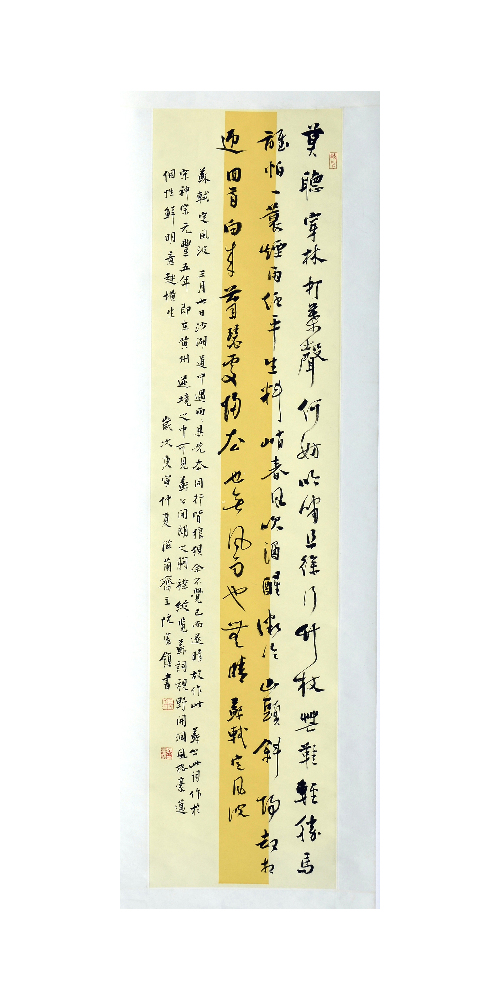 莫聽穿林打葉聲何妨吟嘯且徐行竹杖芒鞋輕勝馬
誰怕一蓑煙雨任平生料峭春風吹酒醒微冷山頭斜陽卻相
迎回首向來蕭瑟處歸去也無風雨也無晴蘇軾定風波
蘇軾定風波三月七日沙湖道中遇雨具先去同行皆狼狽余不覺已而遂晴故作此蘇公此詞作於
宋神宗元豐五年即在黃州逆境之中可見蘇公開朗之襟縱覽蘇詞視野開闊風格豪邁
個性鮮明意趣橫生
歲次庚寅仲夏齋主書